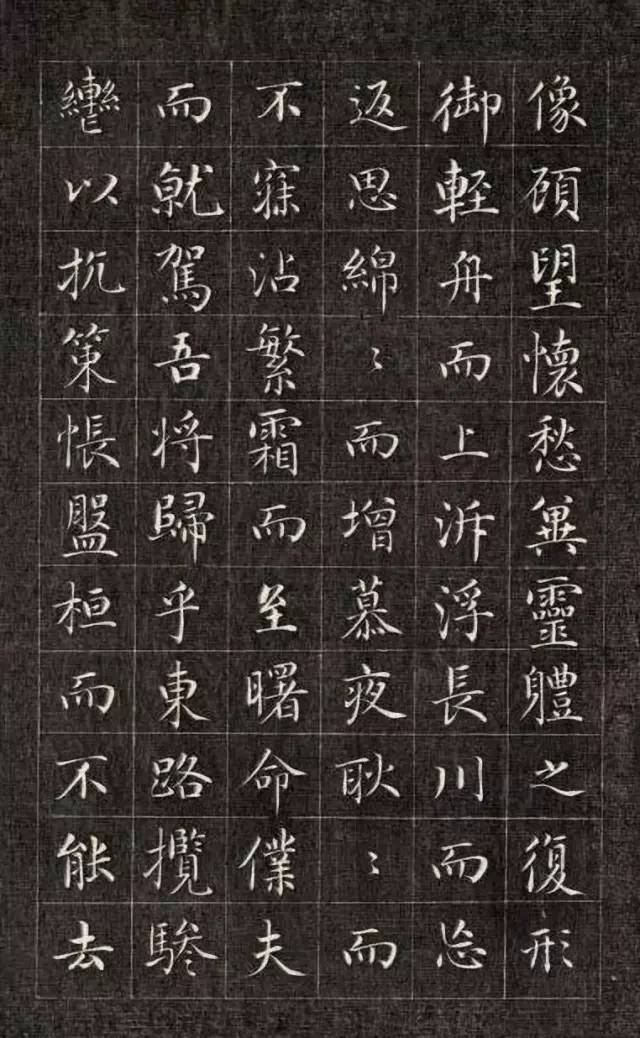 像顧望懷愁冀靈體之復形
御輕舟而上泝浮長川而忘
返思綿〻而增慕夜耿〻而
不寐沾繁霜而至曙命僕夫
而就駕吾将歸乎東路攬騑
轡以抗策悵盤桓而不能去